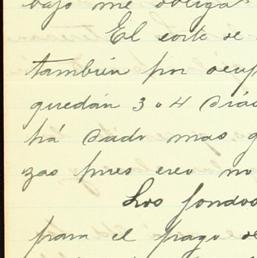 bajo me obliga
El corte de
también por ocup
quedán 3 o 4 diás
há dado mas q
zas pues creo no
Los fondos
para el pago de